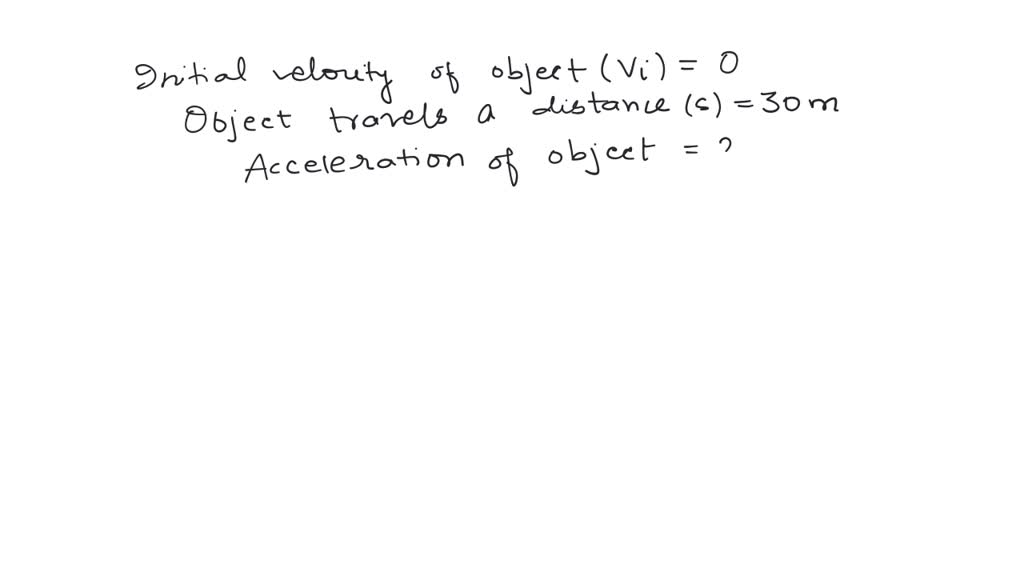 Initial velocity of object (Vi) = 0
Object travels a distance (s) = 30 m
Acceleration of object = ?